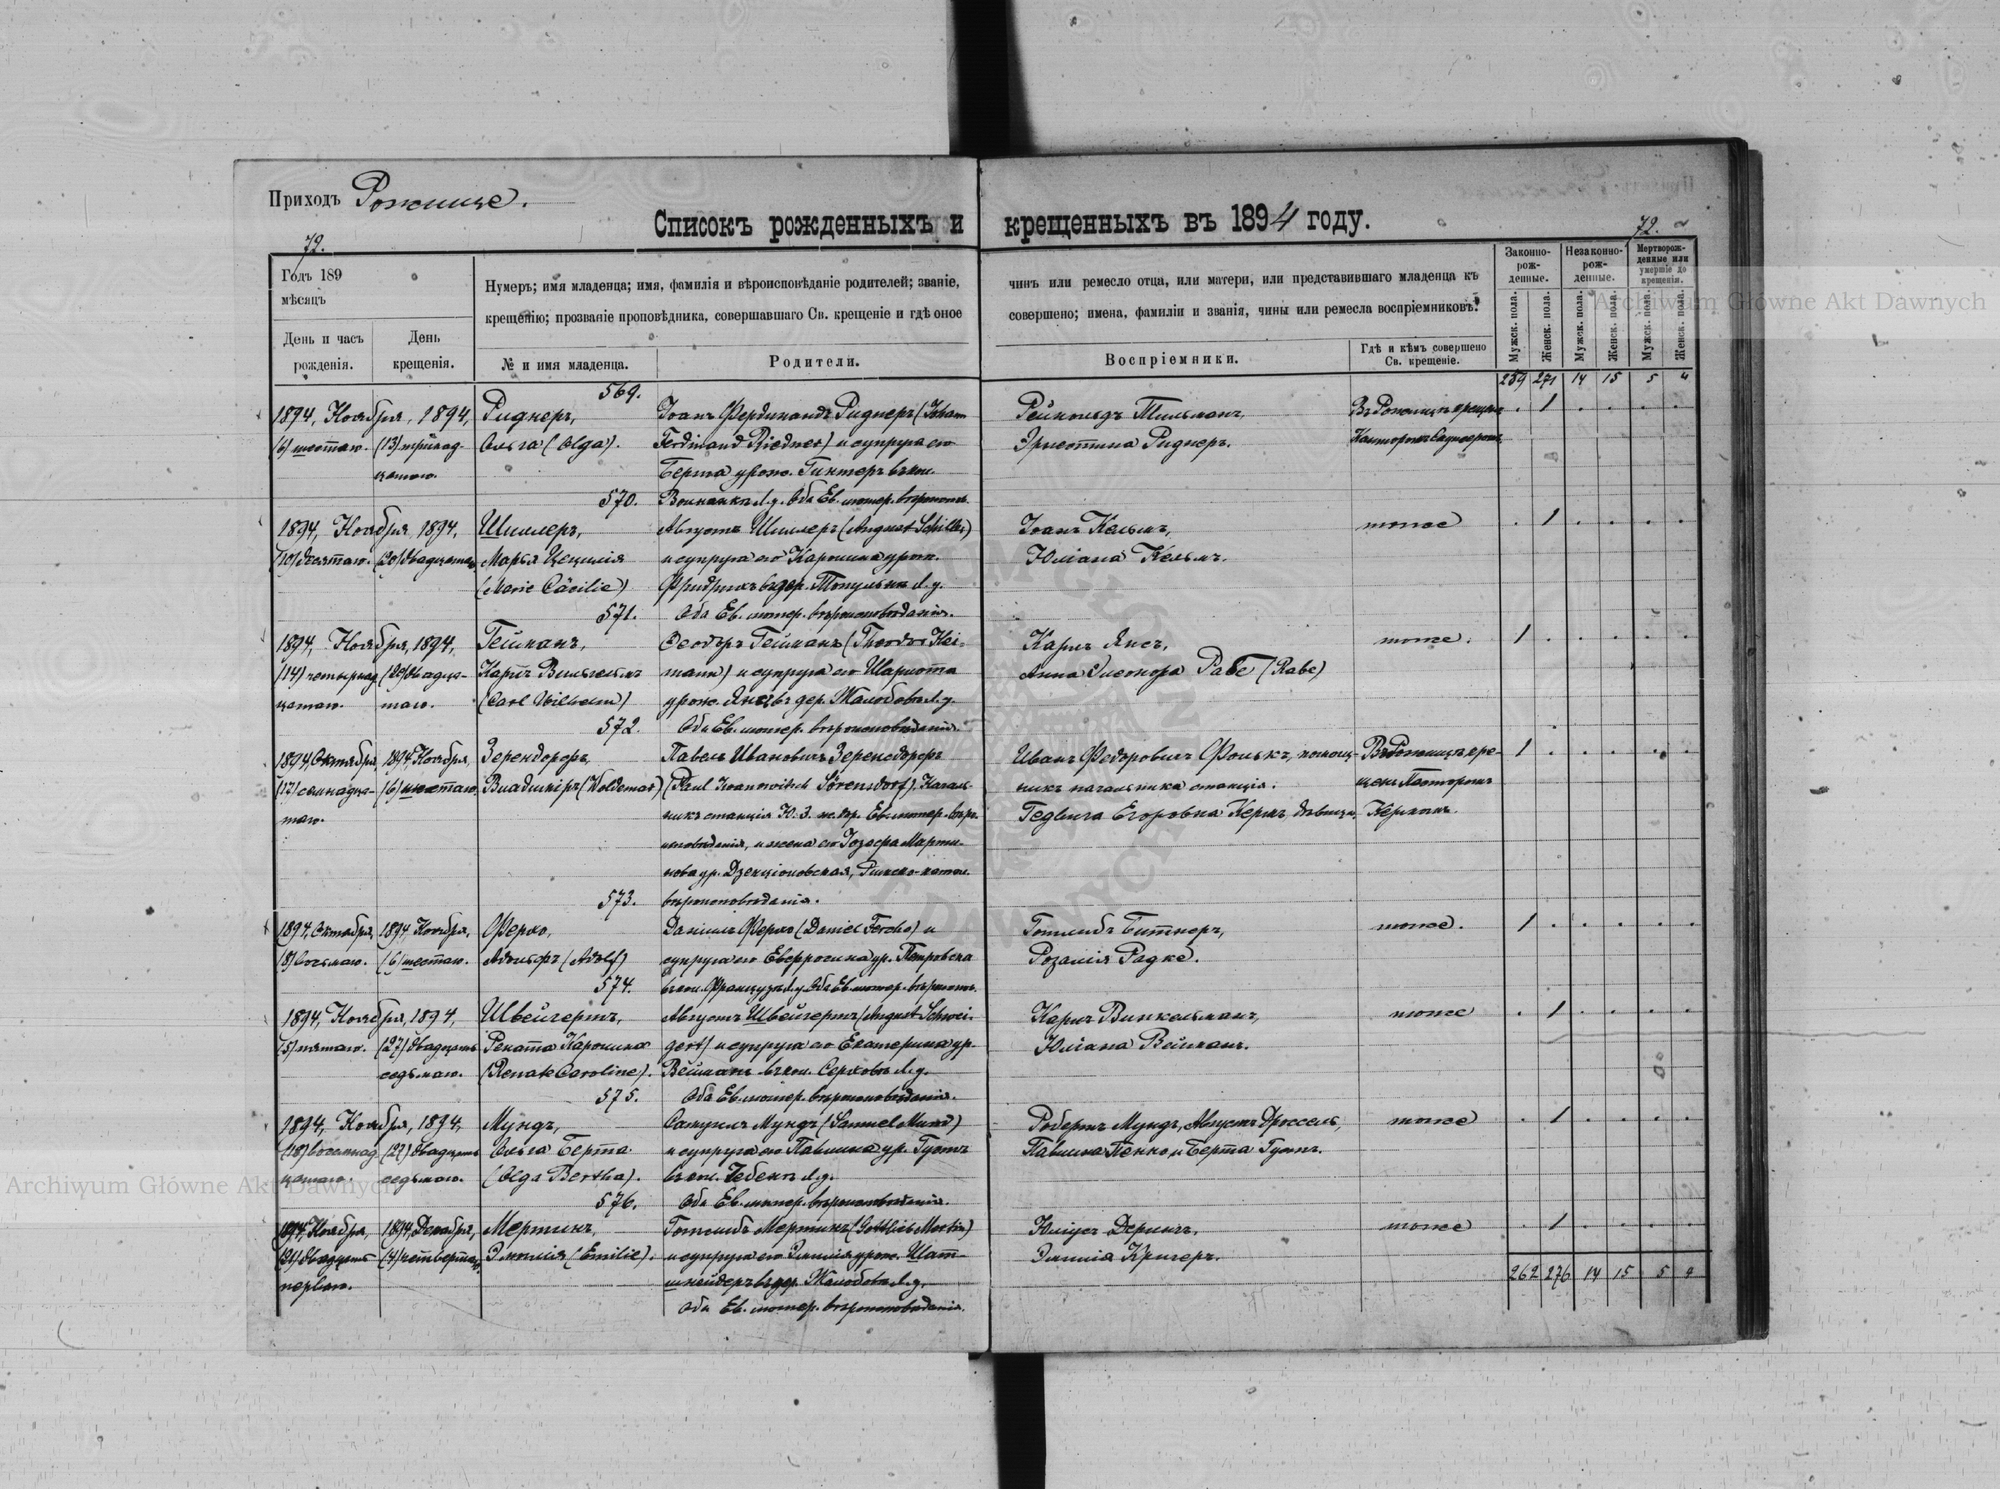 Приходъ Рожище.
Списокъ рожденныхъ и крещенныхъ въ 1894 году.
72.
72.
Годъ 189
мѣсяцъ
День и часъ
рожденія.
День
крещенія.
Нумеръ; имя младенца; имя, фамилія и вѣроисповѣданіе родителей; званіе,
крещенію; прозваніе проповѣдника, совершавшаго Св. крещеніе и гдѣ оное
№ и имя младенца.
Родители.
чинъ или ремесло отца, или матери, или представившаго младенца къ
совершено; имена, фамиліи и званія, чины или ремесла воспріемниковъ.
Воспріемники.
Гдѣ и кѣмъ совершено
Св. крещеніе.
Законно-
рож-
денные.
Незаконно-
рож-
денные.
Мертворож-
денные или
умершіе до
крещенія.
Мужск. пола.
Женск. пола.
Мужск. пола.
Женск. пола.
Мужск. пола.
Женск. пола.
259 271 14 15 5 4
569.
1894, Ноября, 1894,
(6) шестаго. (13) тринад-
цатаго.
Риднеръ,
Ольга (Olga).
Іоанъ Фердинандъ Риднеръ (Johann
Ferdinand Riedner) и супруга его
Берта урож. Гинтеръ въ кол.
Волнянка л.у. Оба Ев. лютер. вѣроисп.
Рейнольдъ Тильманъ,
Эрнестина Риднеръ.
Въ Рожищѣ крещенъ
570.
1894, Ноября, 1894,
(10) десятаго. (20) двадцатаго
Шиллеръ,
Марья Цецилія
(Marie Cäcilie)
Августъ Шиллеръ (August Schiller)
и супруга его Каролина урож.
Фридрихъ въ дер. Топульно л.у.
Оба Ев. лютер. вѣроисповѣданія.
Іоанъ Кельмъ,
Юліана Кельмъ.
тоже
571.
1894, Ноября, 1894,
(14) четырнад-
цатаго.
(20) двадца-
таго.
Гейманъ,
Карлъ Вильгельмъ
(Carl Wilhelm)
Теодоръ Гейманъ (Theodor Hei-
mann) и супруга его Шарлота
урож. Янсъ въ дер. Жалобовъ л.у.
Оба Ев. лютер. вѣроисповѣданія.
Карлъ Янсъ,
Анна Элеонора Рабе (Rabe)
тоже.
572.
1894, Октября, 1894 Ноября,
(17) семнадца-
таго.
(6) шестаго.
Зерендорфъ,
Владиміръ (Woldemar)
Павелъ Ивановичъ Зеренсдорфъ
(Paul Iwanowitsch Sörensdorf). Началь-
никъ станціи Ю. З. ж. дор. Ев. лютер. вѣро-
исповѣданія, и жена его Іозефа Марти-
нова ур. Дзенціоловская, Римско-катол.
вѣроисповѣданія.
Иванъ Федоровичъ Фолькъ, помощ-
никъ начальника станціи.
Гедвига Егоровна Кернъ, дѣвица.
Въ Рожищѣ кре-
щенъ Пасторомъ
Керномъ.
573.
1894, Октября, 1894 Ноября,
(8) восьмаго. (6) шестаго.
Ферхо,
Адольфъ (Adolf)
Даніилъ Ферхо (Daniel Fercho) и
супруга его Евфросина ур. Петровска
въ кол. Французъ л.у. Оба Ев. лютер. вѣроисп.
Готлибъ Битнеръ,
Розалія Радке.
тоже.
574.
1894, Ноября, 1894,
(5) пятаго. (27) двадцать
седьмаго.
Швейгертъ,
Рената Каролина
(Renate Caroline).
Августъ Швейгертъ (August Schwei-
gert) и супруга его Екатерина ур.
Вейманъ въ кол. Серховъ л.у.
Оба Ев. лютер. вѣроисповѣданія.
Карлъ Винкельманъ,
Юліана Вейманъ.
тоже
575.
1894, Ноября, 1894,
(18) восемнад-
цатаго.
(27) двадцать
седьмаго.
Мундъ,
Ольга Берта
(Olga Bertha).
Самуилъ Мундъ (Samuel Mund)
и супруга его Павлина ур. Густъ
въ кол. Чебени л.у.
Оба Ев. лютер. вѣроисповѣданія.
Робертъ Мундъ, Августъ Дроссель,
Павлина Пенно и Берта Густъ.
тоже
576.
1894, Ноября, 1894, Декабря,
(21) двадцать
перваго.
(4) четвертаго.
Мертинъ,
Эмилія (Emilie).
Готлибъ Мертинъ (Gottlieb Mertin)
и супруга его Эмилія урож. Шат-
шнейдеръ въ дер. Жалобовъ л.у.
Оба Ев. лютер. вѣроисповѣданія.
Юліусъ Дерингъ.
Эмилія Кригеръ.
тоже
262 276 14 15 5 4
Archiwum Główne Akt Dawnych
Archiwum Główne Akt Dawnych